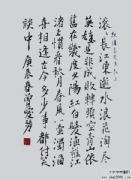 滚〻長江東逝水浪花淘盡
英雄是非成敗轉頭空青山依
舊在幾度夕陽紅白髮漁樵江
渚上慣看秋月春風一壺濁酒
喜相逢古今多少事都付笑
談中 庚辰春